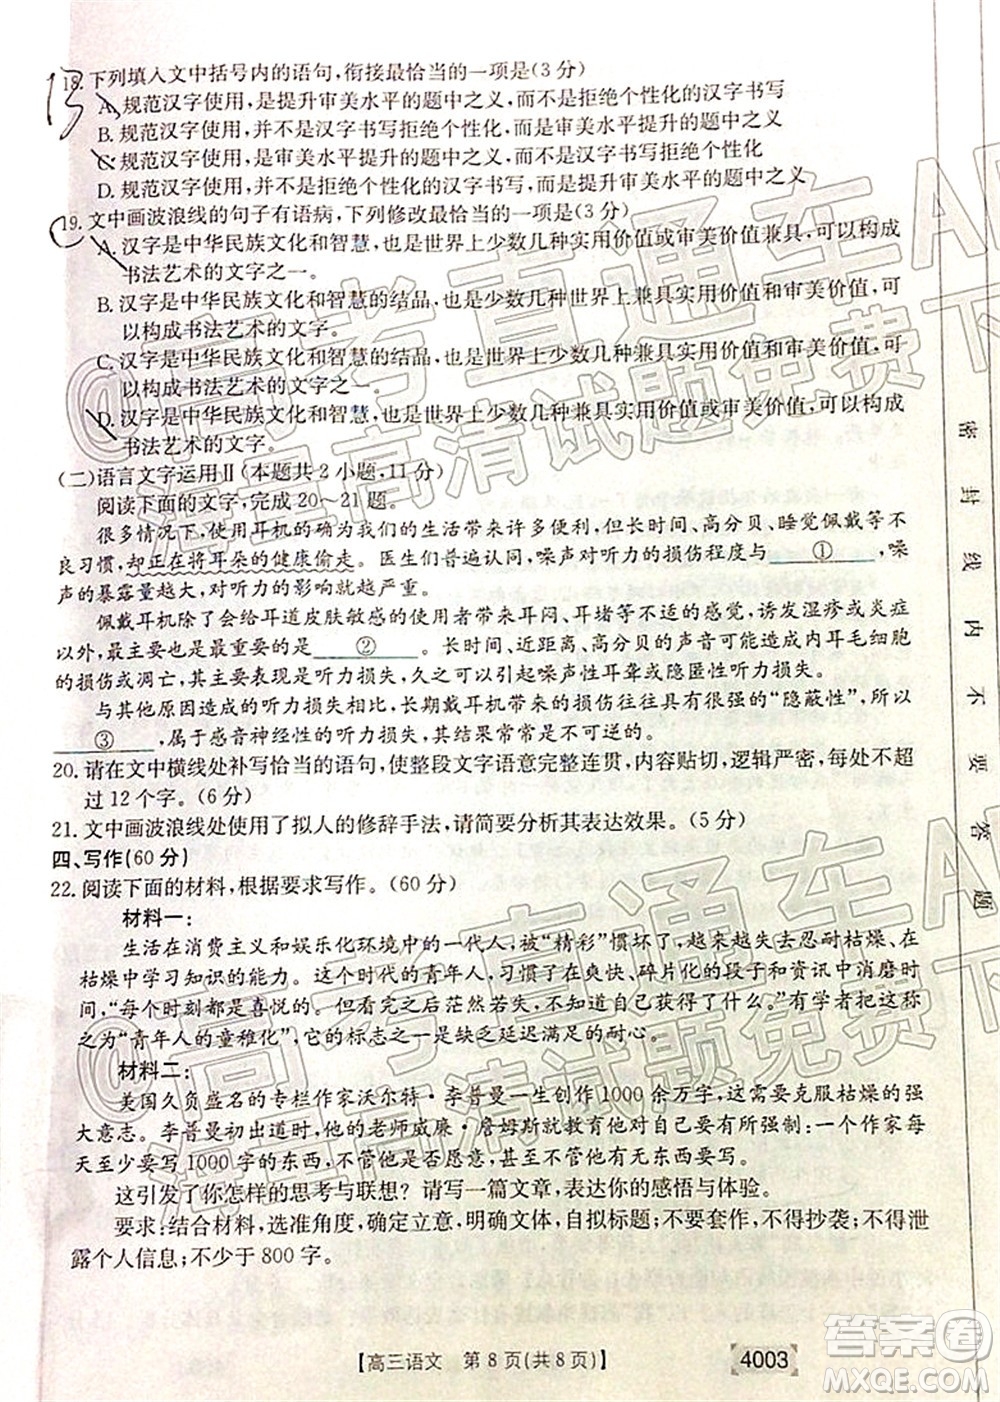 13
18. 下列填入文中括号内的语句,衔接最恰当的一项是(3分)
A. 规范汉字使用,是提升审美水平的题中之义,而不是拒绝个性化的汉字书写
B. 规范汉字使用,并不是汉字书写拒绝个性化,而是审美水平提升的题中之义
C. 规范汉字使用,是审美水平提升的题中之义,而不是汉字书写拒绝个性化
D. 规范汉字使用,并不是拒绝个性化的汉字书写,而是提升审美水平的题中之义
19. 文中画波浪线的句子有语病,下列修改最恰当的一项是(3分)
A. 汉字是中华民族文化和智慧,也是世界上少数几种实用价值或审美价值兼具,可以构成
书法艺术的文字之一。
B. 汉字是中华民族文化和智慧的结晶,也是少数几种世界上兼具实用价值和审美价值,可
以构成书法艺术的文字。
C. 汉字是中华民族文化和智慧的结晶,也是世界上少数几种兼具实用价值和审美价值,可
以构成书法艺术的文字之一。
D. 汉字是中华民族文化和智慧,也是世界上少数几种兼具实用价值或审美价值,可以构成
书法艺术的文字。
(二)语言文字运用Ⅱ(本题共2小题,11分)
阅读下面的文字,完成20~21题。
很多情况下,使用耳机的确为我们的生活带来许多便利,但长时间、高分贝、睡觉佩戴等不
良习惯,却正在将耳朵的健康偷走。医生们普遍认同,噪声对听力的损伤程度与 ① ,噪
声的暴露量越大,对听力的影响就越严重。
佩戴耳机除了会给耳道皮肤敏感的使用者带来耳闷、耳堵等不适的感觉,诱发湿疹或炎症
以外,最重要的是 ② 。使用耳机时,近距离、高分贝的声音可能造成内耳毛细胞
的损伤或凋亡,其后果就是听力损失,严重者会引起噪声性耳聋或隐匿性听力损失。
与其他原因造成的听力损失相比,长期戴耳机造成的听力损失往往具有很强的“隐蔽性”,
③ ,属于感音神经性的听力损失,其结果常常是不可逆的。
20. 请在文中横线处补写恰当的语句,使整段文字语意完整连贯,内容贴切,逻辑严密,每处不超
过12个字。(6分)
21. 文中画波浪线处使用了拟人的修辞手法,请简要分析其表达效果。(5分)
四、写作(60分)
22. 阅读下面的材料,根据要求写作。(60分)
材料一:
生活在消费主义和娱乐化环境中的一代人,被“精彩”惯坏了,越来越失去忍耐枯燥、在
枯燥中学习知识的能力。这个时代的青年人,习惯了在爽快、碎片化的段子和资讯中消磨时
间,“每个时刻都是喜悦的。但看完之后茫然若失,不知道自己获得了什么。”有学者把这称
之为“青年人的童稚化”,它的标志之一是缺乏延迟满足的耐心。
材料二:
美国久负盛名的专栏作家沃尔特·李普曼一生创作1000余万字,这源于他克服枯燥的强
大意志。李普曼初出道时,他的老师威廉·詹姆斯就教育他对文字要有一种意志:一个作家每
天至少要写1000字的东西,不管他是否愿意,甚至不管他有无东西要说,都要写。
这引发了你怎样的思考与联想?请写一篇文章,表达你的感悟与体验。
要求:结合材料,选准角度,确定立意,明确文体,自拟标题;不要套作,不得抄袭;不得泄
露个人信息;不少于800字。
【高三语文　第8页(共8页)】
4003
密封线内不要答题
@高考直通车APP
海量高清试题免费下
@高考直通车AP
海量高清试题免费下
答案圈
MXQE.COM